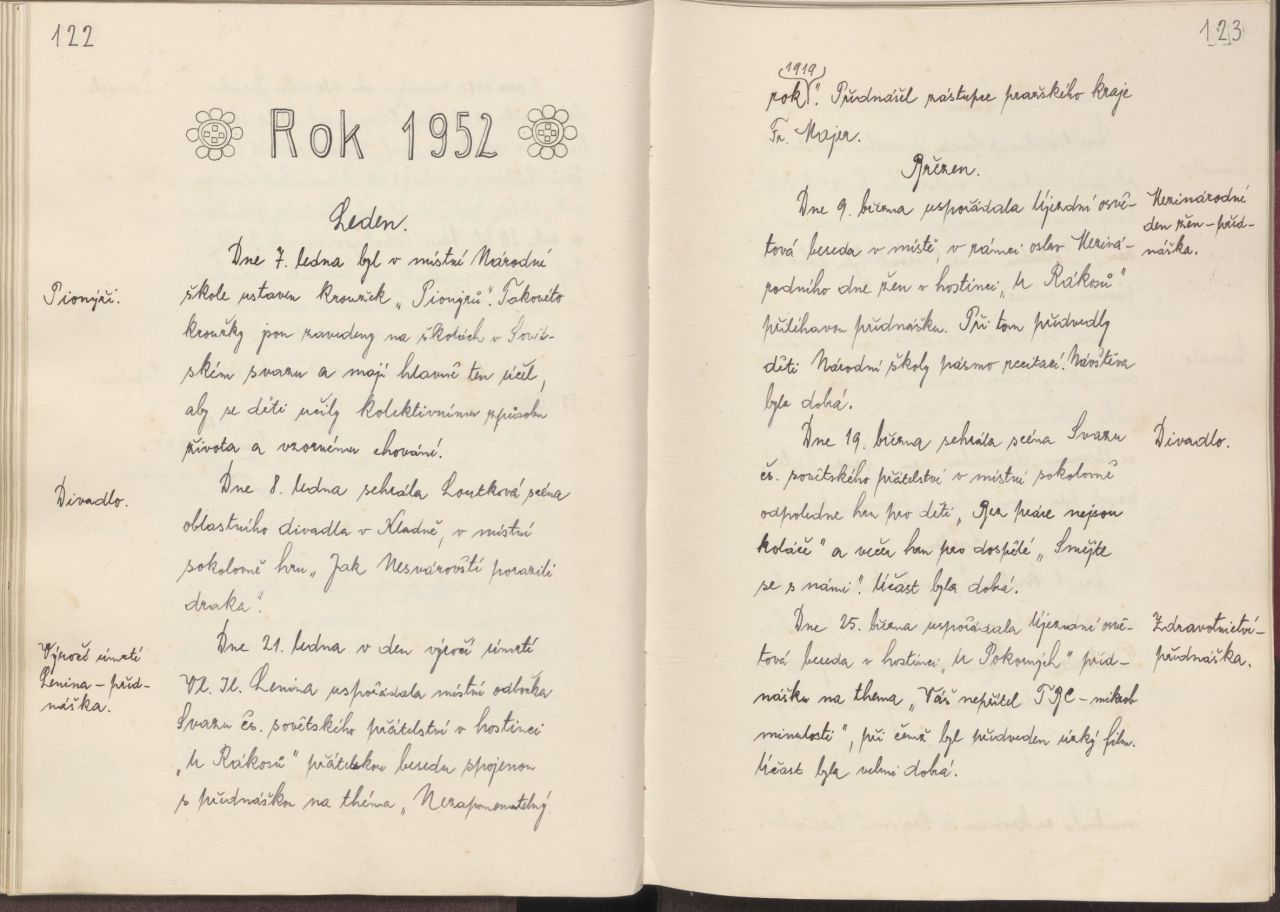 122
Rok 1952
Leden.
Dne 7. ledna byl v místní Národní
Pionýři.
škole ustaven kroužek „Pionýrů". Takovéto
kroužky jsou zavedeny na školách v Sovět-
ském svazu a mají hlavně ten účel,
aby se děti učily kolektivnímu způsobu
života a vzornému chování.
Divadlo.
Dne 8. ledna sehrála Loutková scéna
oblastního divadla v Kladně, v místní
sokolovně hru „Jak Nesvárovští porazili
draka".
Výročí úmrtí
Lenina – před-
náška.
Dne 21. ledna v den výročí úmrtí
Vl. Il. Lenina uspořádala místní odbočka
Svazu čs. sovětského přátelství v hostinci
„U Rákosů" přátelskou besedu spojenou
s přednáškou na théma „Nezapomenutelný
123
1919
rok". Přednášel zástupce pražského kraje
Fr. Majer.
Březen.
Dne 9. března uspořádala Újezdní osvě-
tová beseda v místě, v rámci oslav Meziná-
rodního dne žen v hostinci „U Rákosů"
přiléhavou přednášku. Při tom předvedly
děti Národní školy pásmo recitací. Návštěva
byla dobrá.
Mezinárodní
den žen – před-
náška.
Dne 19. března sehrála scéna Svazu
čs. sovětského přátelství v místní sokolovně
odpoledne hru pro děti „Bez práce nejsou
koláče" a večer hru pro dospělé „Smějte
se s námi". Účast byla dobrá.
Divadlo.
Dne 25. března uspořádala Újezdní osvě-
tová beseda v hostinci „U Pokorných" před-
nášku na thema „Váš nepřítel TBC – mikrob
minulosti", při čemž byl předveden úzký film.
Účast byla velmi dobrá.
Zdravotnictví –
přednáška.